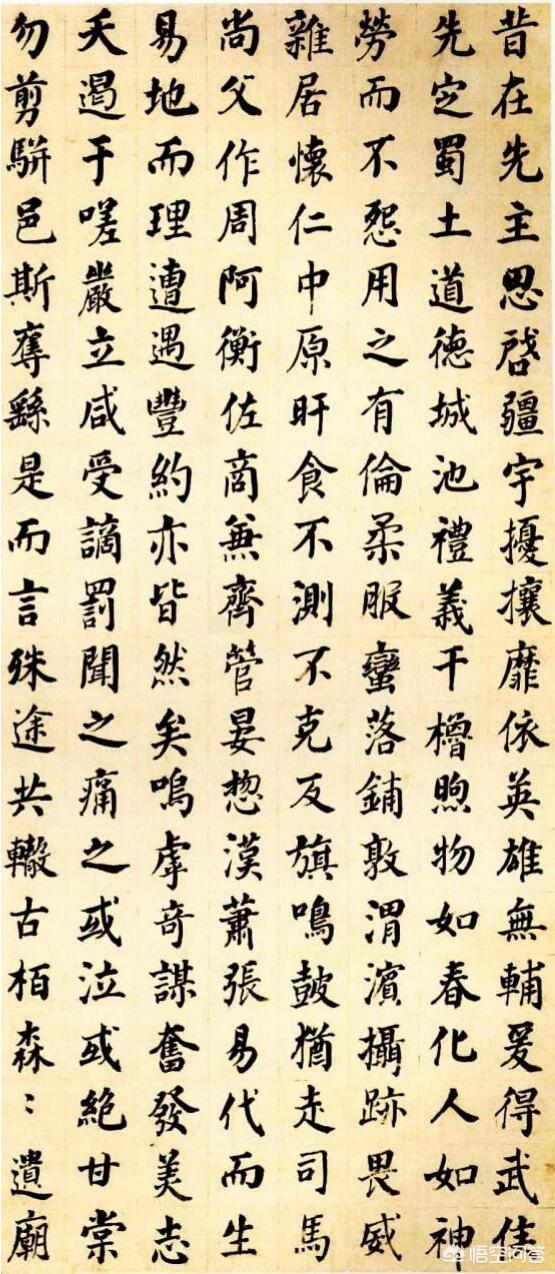 昔在先主思啓疆宇擾攘靡依英雄無輔爰得武侯
先定蜀土道德城池禮義干櫓煦物如春化人如神
勞而不怨用之有倫柔服蠻落鋪敦渭濱攝跡畏威
雜居懷仁中原旰食不測不克反旗鳴鼓猶走司馬
尚父作周阿衡佐商兼齊管晏惣漢蕭張易代而生
易地而理遭遇豐約亦皆然矣嗚虖奇謀奮發美志
夭遏于嗟嚴立咸受謫罰聞之痛之或泣或絕甘棠
勿剪騈邑斯奪繇是而言殊途共轍古柏森〻遺廟
悟空问答